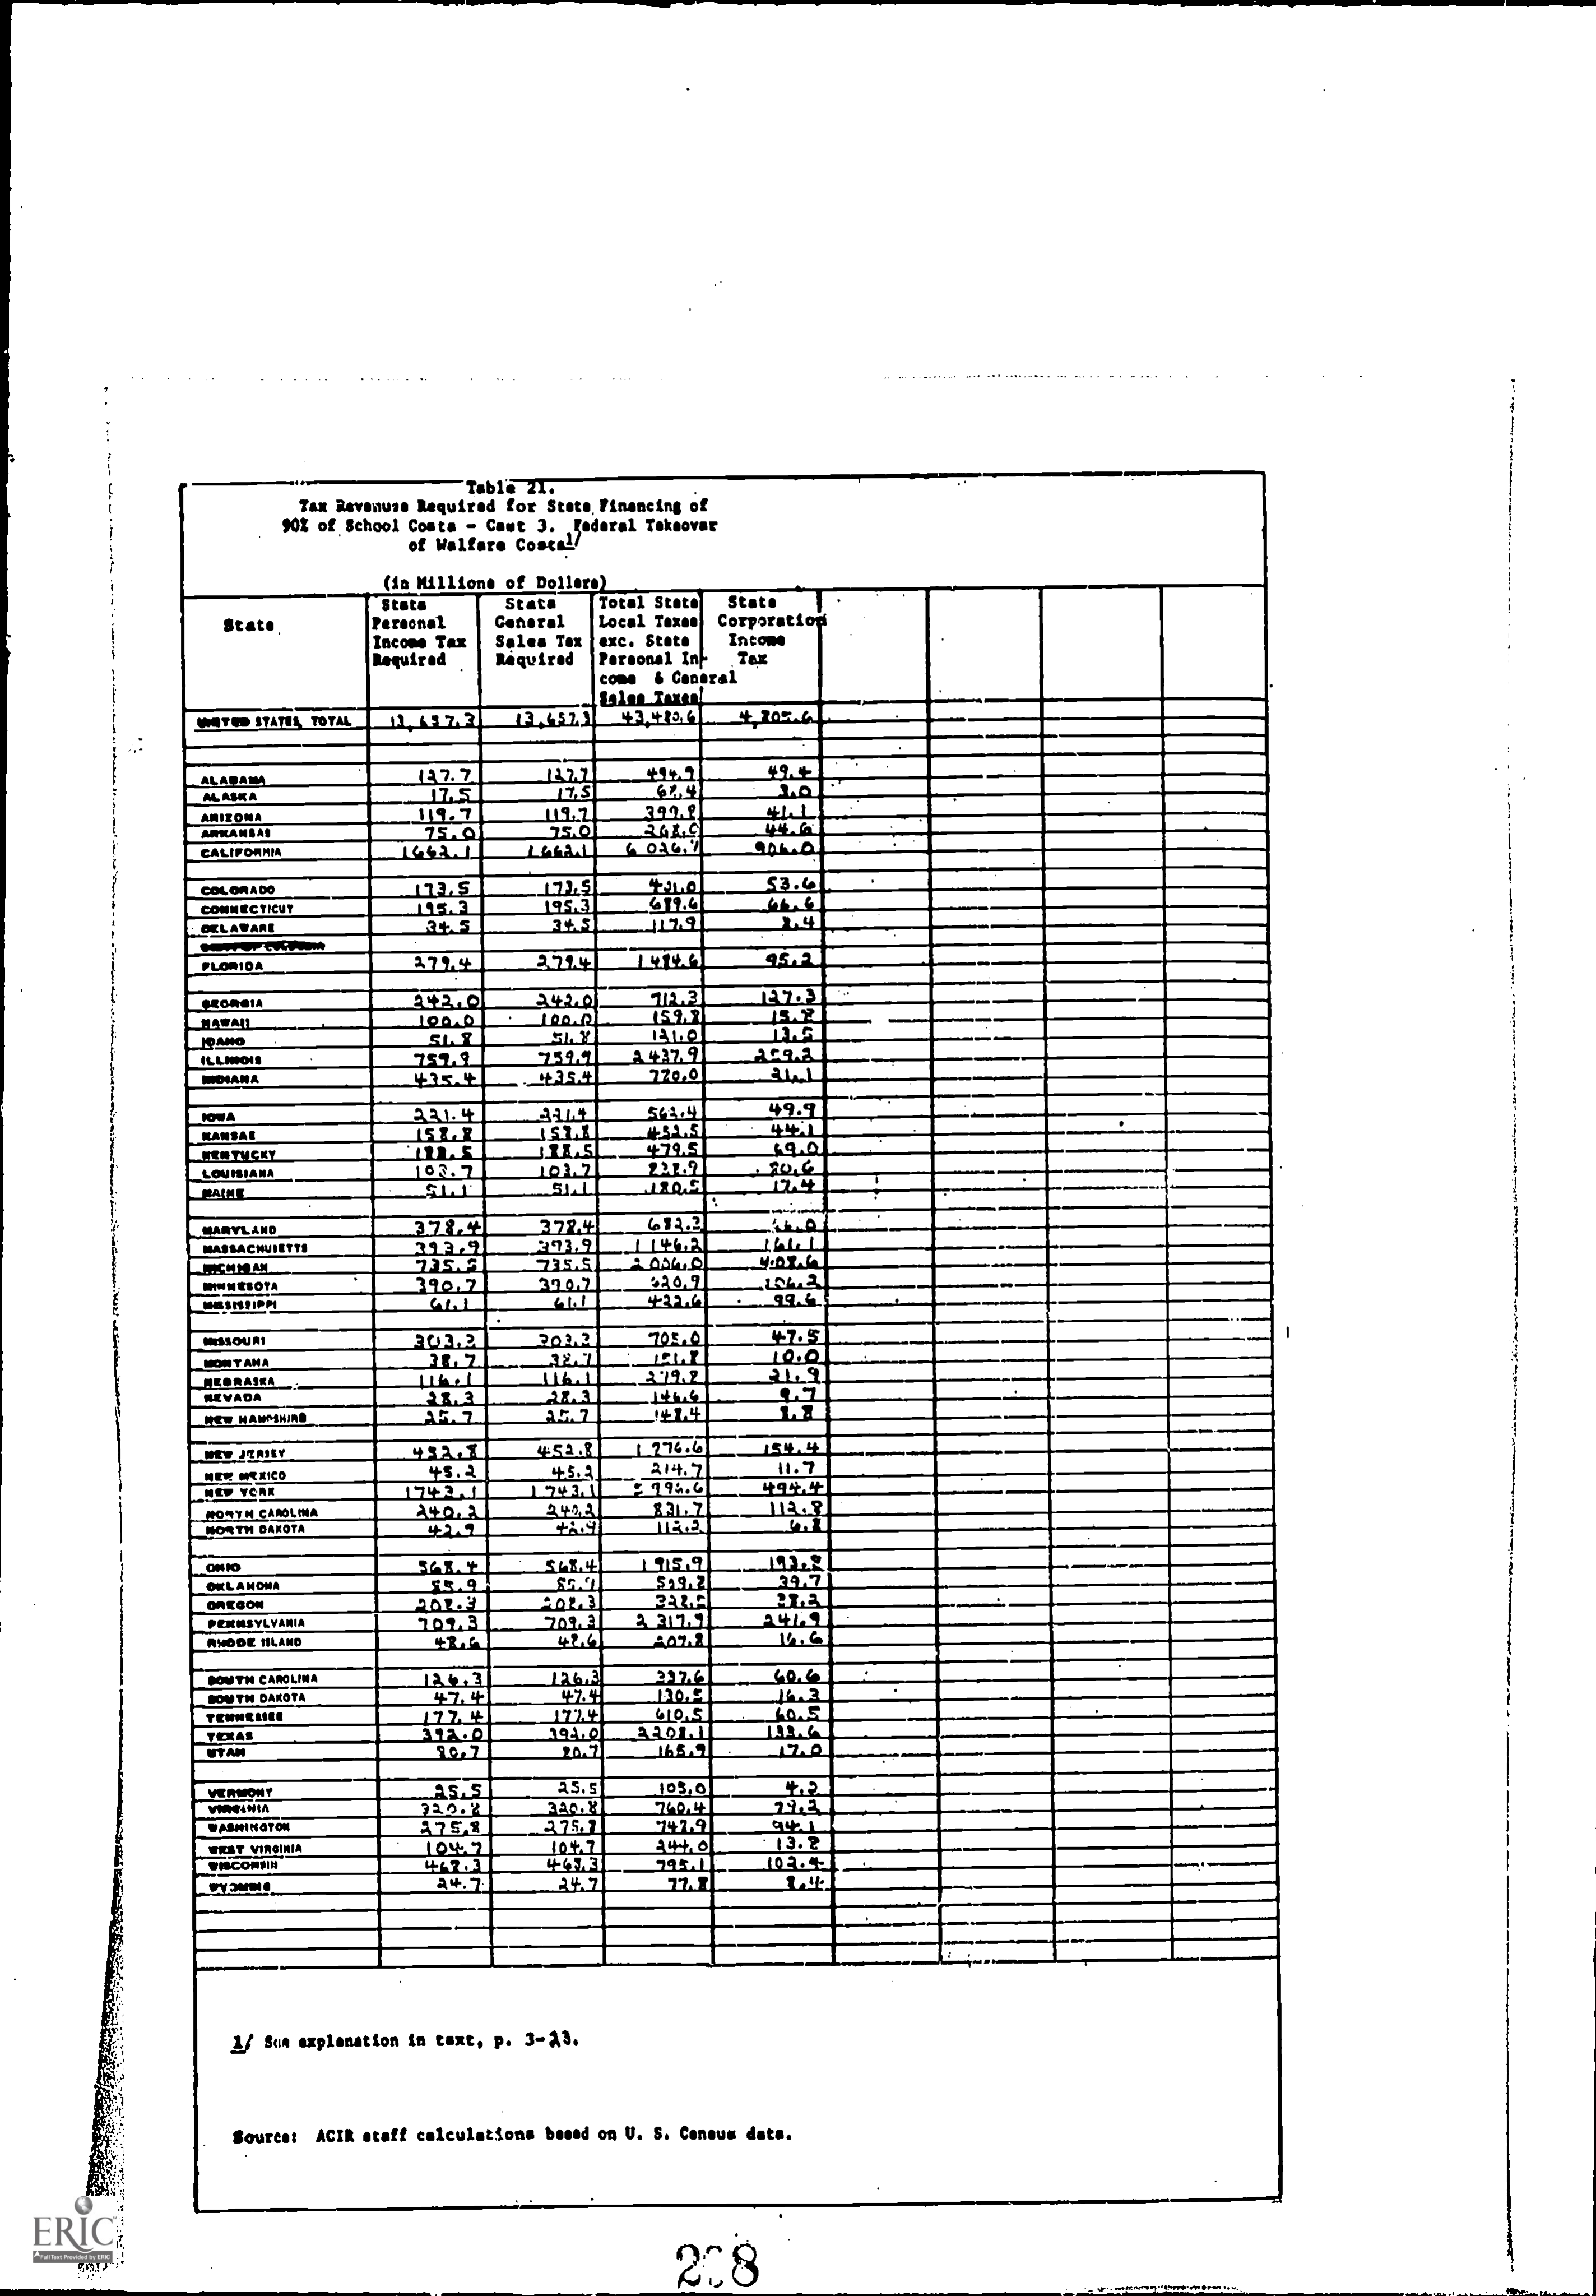 Table 21.
Tax Revenues Required for State Financing of
90% of School Costs - Case 3. Federal Takeover
of Welfare Costs 1/
(in Millions of Dollars)
State
State Personal Income Tax Required
State General Sales Tax Required
Total State Local Taxes exc. State Personal Income & General Sales Taxes
State Corporation Income Tax
UNITED STATES, TOTAL 13,657.3 13,657.3 43,480.6 4,805.6
ALABAMA 127.7 127.7 494.9 49.4
ALASKA 17.5 17.5
ARIZONA 119.7 119.7 399.8 41.1
ARKANSAS 75.0 75.0 44.6
CALIFORNIA 1662.1 1662.1 906.0
COLORADO 173.5 173.5 53.6
CONNECTICUT 195.3 195.3 689.6 66.6
DELAWARE 34.5 34.5 117.9 8.4
FLORIDA 279.4 279.4 1484.6 95.2
GEORGIA 242.0 242.0 712.3 127.3
HAWAII 100.0 100.0 159.8 15.8
IDAHO 51.8 51.8 131.0 13.5
ILLINOIS 759.9 759.9 2437.9 259.2
INDIANA 435.4 435.4 770.0
IOWA 221.4 221.4 562.4 49.9
KANSAS 158.8 158.8 452.5 44.1
KENTUCKY 188.5 188.5 479.5 69.0
LOUISIANA 103.7 103.7
MAINE 51.1 51.1 180.5 17.4
MARYLAND 378.4 378.4 682.3
MASSACHUSETTS 393.9 393.9 1146.2 161.1
MICHIGAN 735.5 735.5 2006.0 408.6
MINNESOTA 390.7 390.7
MISSISSIPPI 61.1 61.1 422.6 99.6
MISSOURI 303.2 303.2 705.0 47.5
MONTANA 38.7 38.7 151.8 10.0
NEBRASKA 116.1 116.1 21.9
NEVADA 28.3 28.3 146.6 9.7
NEW HAMPSHIRE 25.7 25.7 148.4 8.8
NEW JERSEY 452.8 452.8 154.4
NEW MEXICO 45.2 45.2 214.7 11.7
NEW YORK 1743.1 1743.1 494.4
NORTH CAROLINA 240.2 240.2 831.7 112.8
NORTH DAKOTA 42.9 42.9 112.2 6.8
OHIO 568.4 568.4 1915.9 193.8
OKLAHOMA 85.9 85.9 39.7
OREGON 208.3 208.3 38.2
PENNSYLVANIA 709.3 709.3 2317.9 241.9
RHODE ISLAND 48.6 48.6 207.8 16.6
SOUTH CAROLINA 126.3 126.3 337.6 60.6
SOUTH DAKOTA 47.4 47.4 130.5 16.3
TENNESSEE 177.4 177.4 610.5 60.5
TEXAS 392.0 392.0 2208.1 133.6
UTAH 80.7 80.7 165.9 17.0
VERMONT 25.5 25.5 103.0 4.2
VIRGINIA 320.8 320.8 760.4 79.2
WASHINGTON 275.8 275.8 747.9 94.1
WEST VIRGINIA 104.7 104.7 244.0 13.8
WISCONSIN 468.3 468.3 795.1 102.4
WYOMING 24.7 24.7 77.8 8.4
1/ See explanation in text, p. 3-23.
Source: ACIR staff calculations based on U. S. Census data.
ERIC
Full Text Provided by ERIC